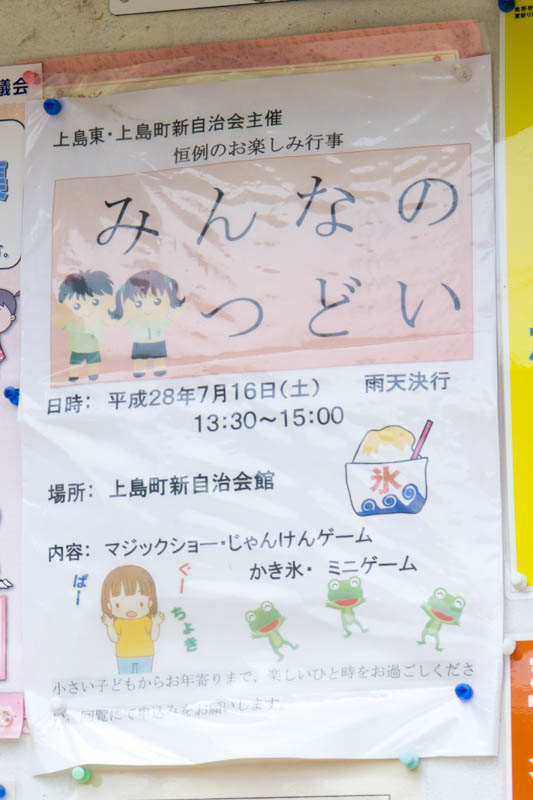 上島東・上島町新自治会主催
恒例のお楽しみ行事
みんなの
つどい
日時： 平成28年7月16日（土） 雨天決行
13:30～15:00
場所： 上島町新自治会館
氷
内容： マジックショー・じゃんけんゲーム
かき氷・ ミニゲーム
ぱー
ぐー
ちょき
小さい子どもからお年寄りまで、楽しいひと時をお過ごしくださ
い。回覧にて申込みをお願いします。
議会
す。